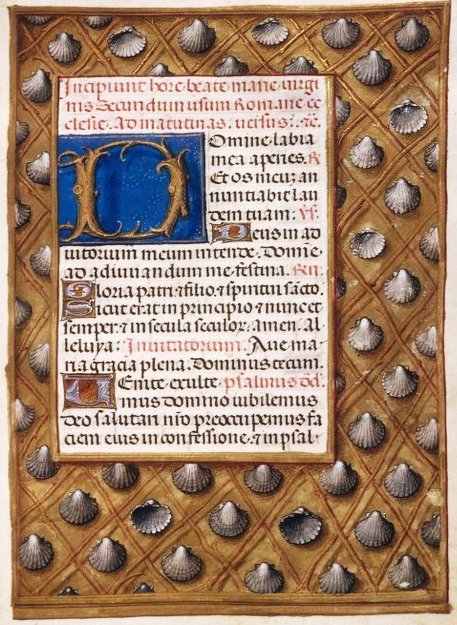 Incipiunt hore beate marie virgi
nis Secundum usum Romane ec
clesie. Ad matutinas. versus: &c.
Domine labia
mea aperies. R
Et os meuz an
nuntiabit lau
dem tuam: V.
Deus in ad
iutorium meum intende. Domie
ad adiuvandum me festina. Rn.
Gloria patri & filio. & spiritui sacto.
Sicut erat in principio & nunc et
semper. & in secula seculor. amen. Al-
leluya: Invitatorium. Ave ma-
ria gracia plena. Dominus tecum.
Venite exulte. psalmus dd.
mus domino iubilemus
deo salutari nro preoccupemus fa
ciem eius in confessione. & in psal-